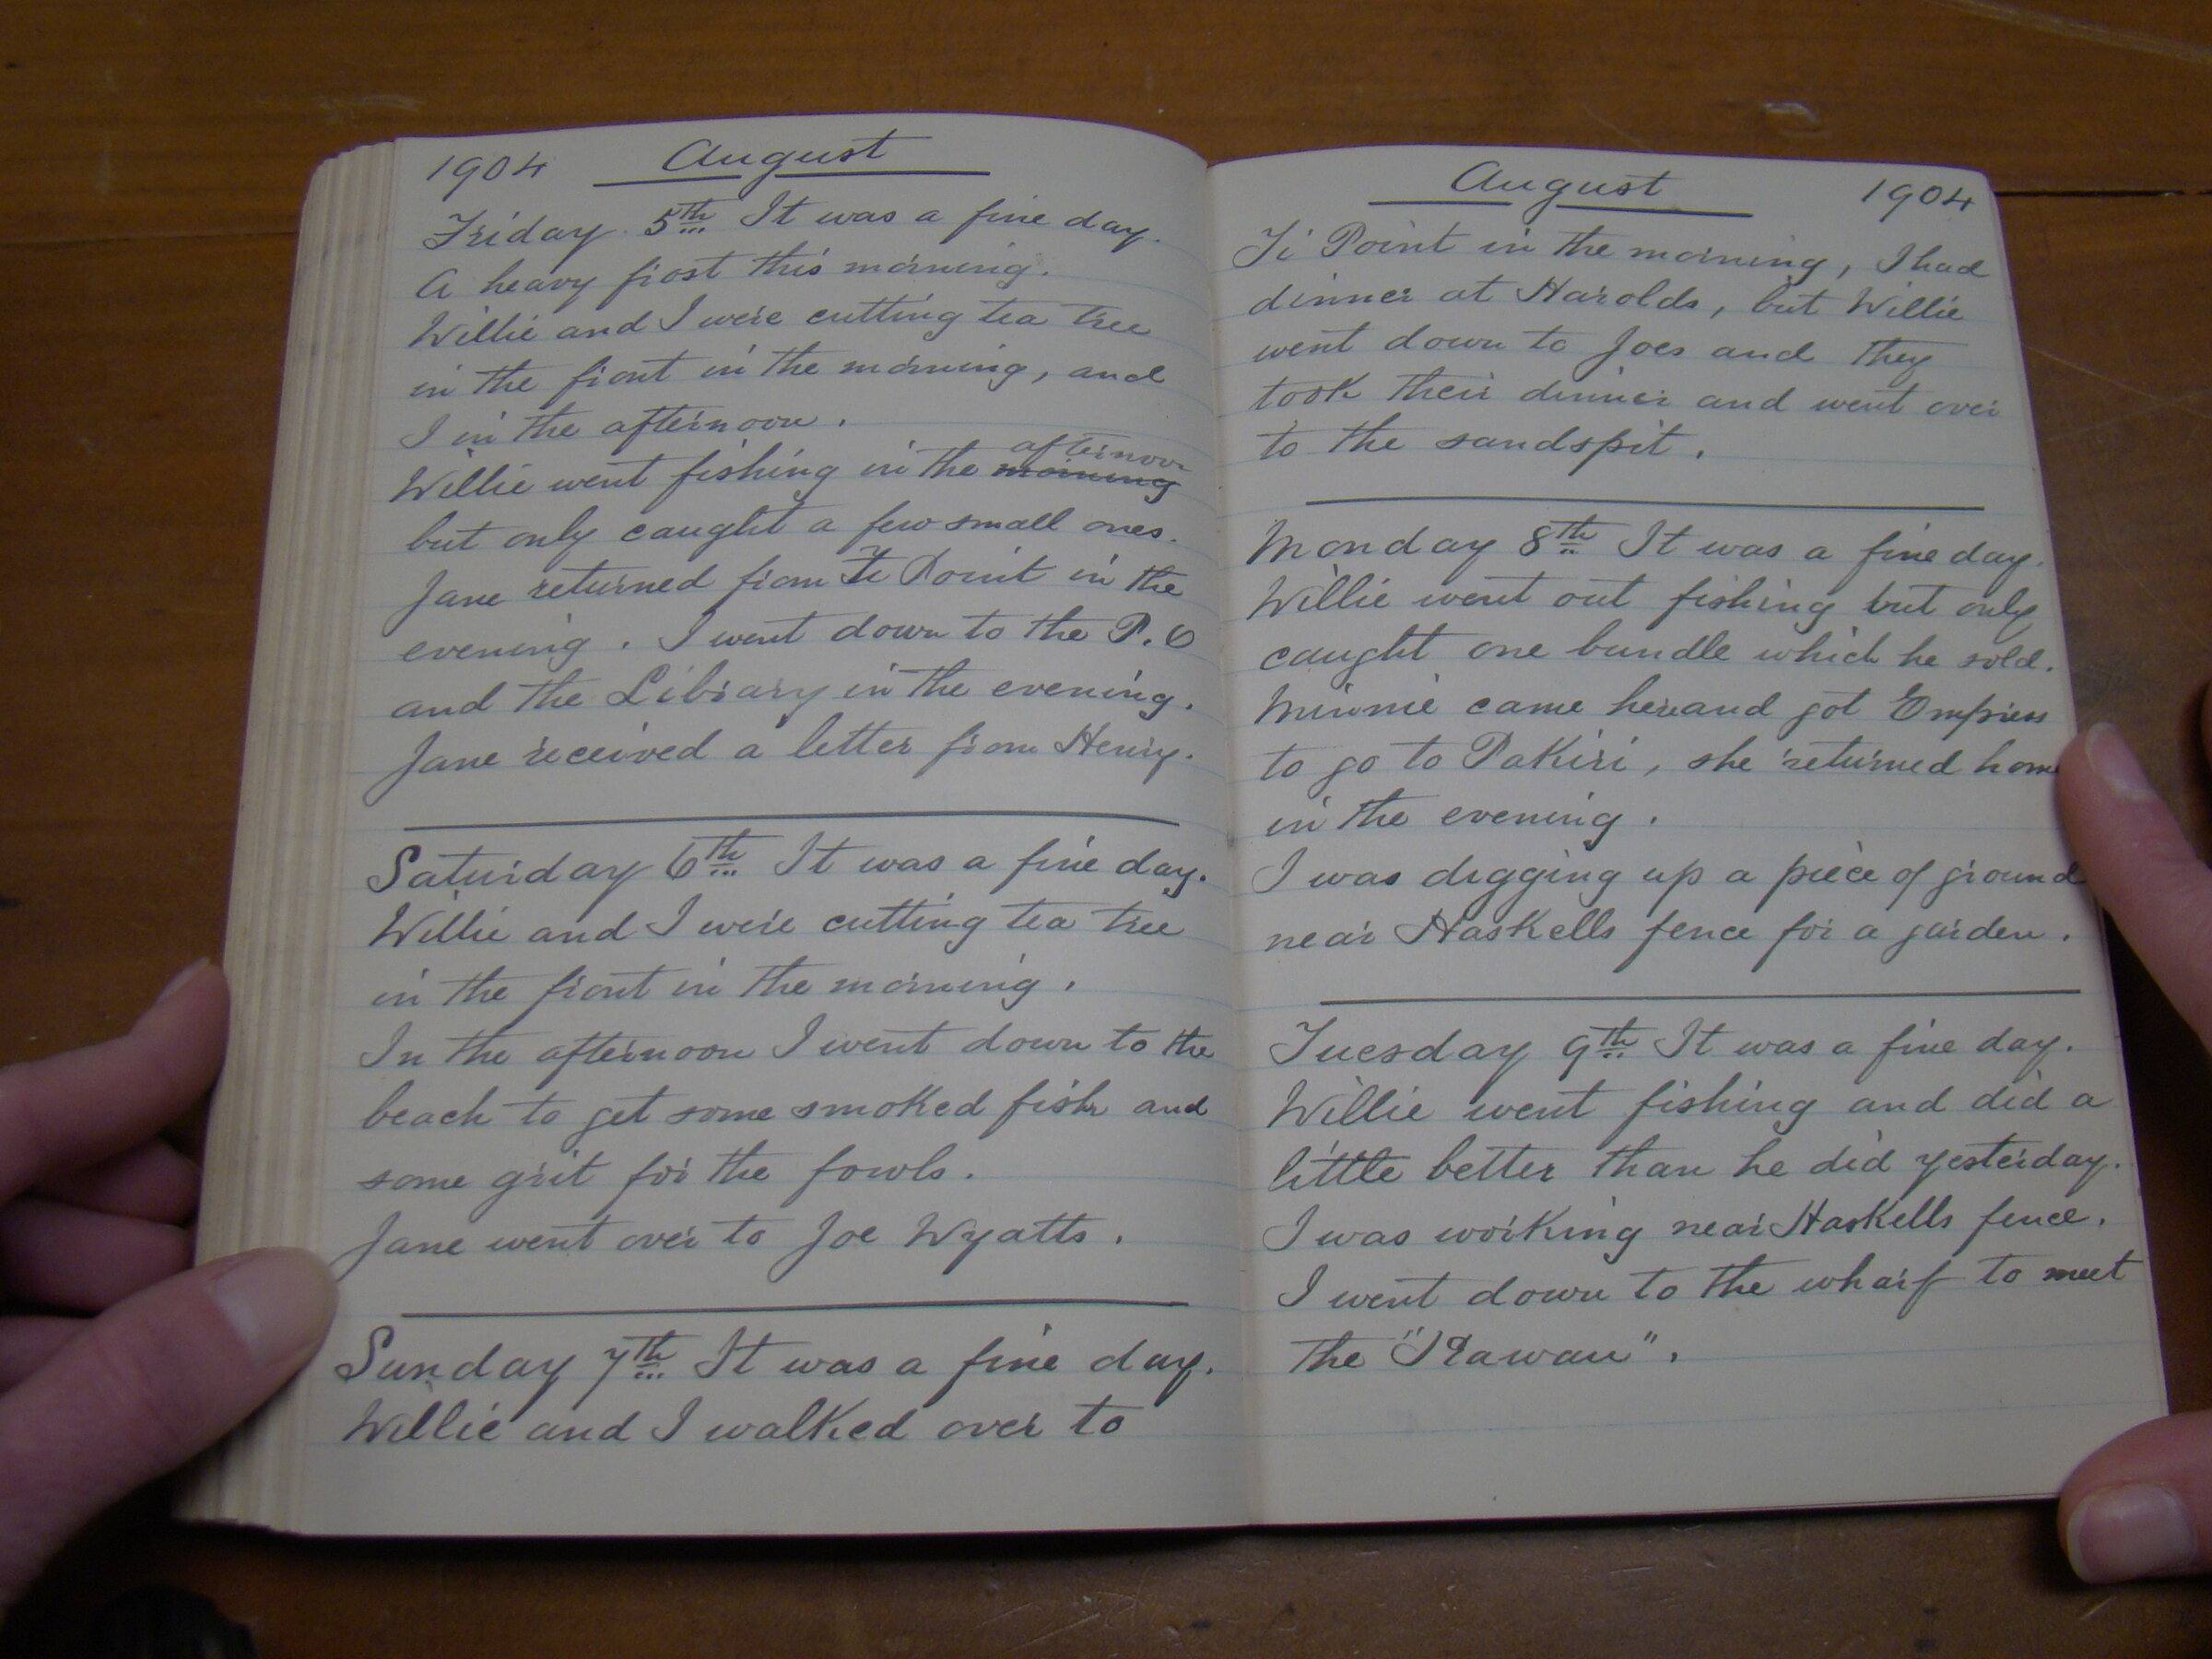 1904 August
Friday 5th It was a fine day.
A heavy frost this morning.
Willie and I were cutting tea tree
in the front in the morning, and
I in the afternoon.
afternoon
Willie went fishing in the morning
but only caught a few small ones.
Jane returned from Ti Point in the
evening. I went down to the P.O
and the Library in the evening.
Jane received a letter from Henry.
Saturday 6th It was a fine day.
Willie and I were cutting tea tree
in the front in the morning.
In the afternoon I went down to the
beach to get some smoked fish and
some grit for the fowls.
Jane went over to Joe Wyatts.
Sunday 7th It was a fine day.
Willie and I walked over to
August 1904
Ti Point in the morning, I had
dinner at Harolds, but Willie
went down to Joes and they
took their dinner and went over
to the sandspit.
Monday 8th It was a fine day.
Willie went out fishing but only
caught one bundle which he sold.
Minnie came here and got Empress
to go to Pakiri, she returned home
in the evening.
I was digging up a piece of ground
near Haskells fence for a garden.
Tuesday 9th It was a fine day.
Willie went fishing and did a
little better than he did yesterday.
I was working near Haskells fence.
I went down to the wharf to meet
the "Kawau".